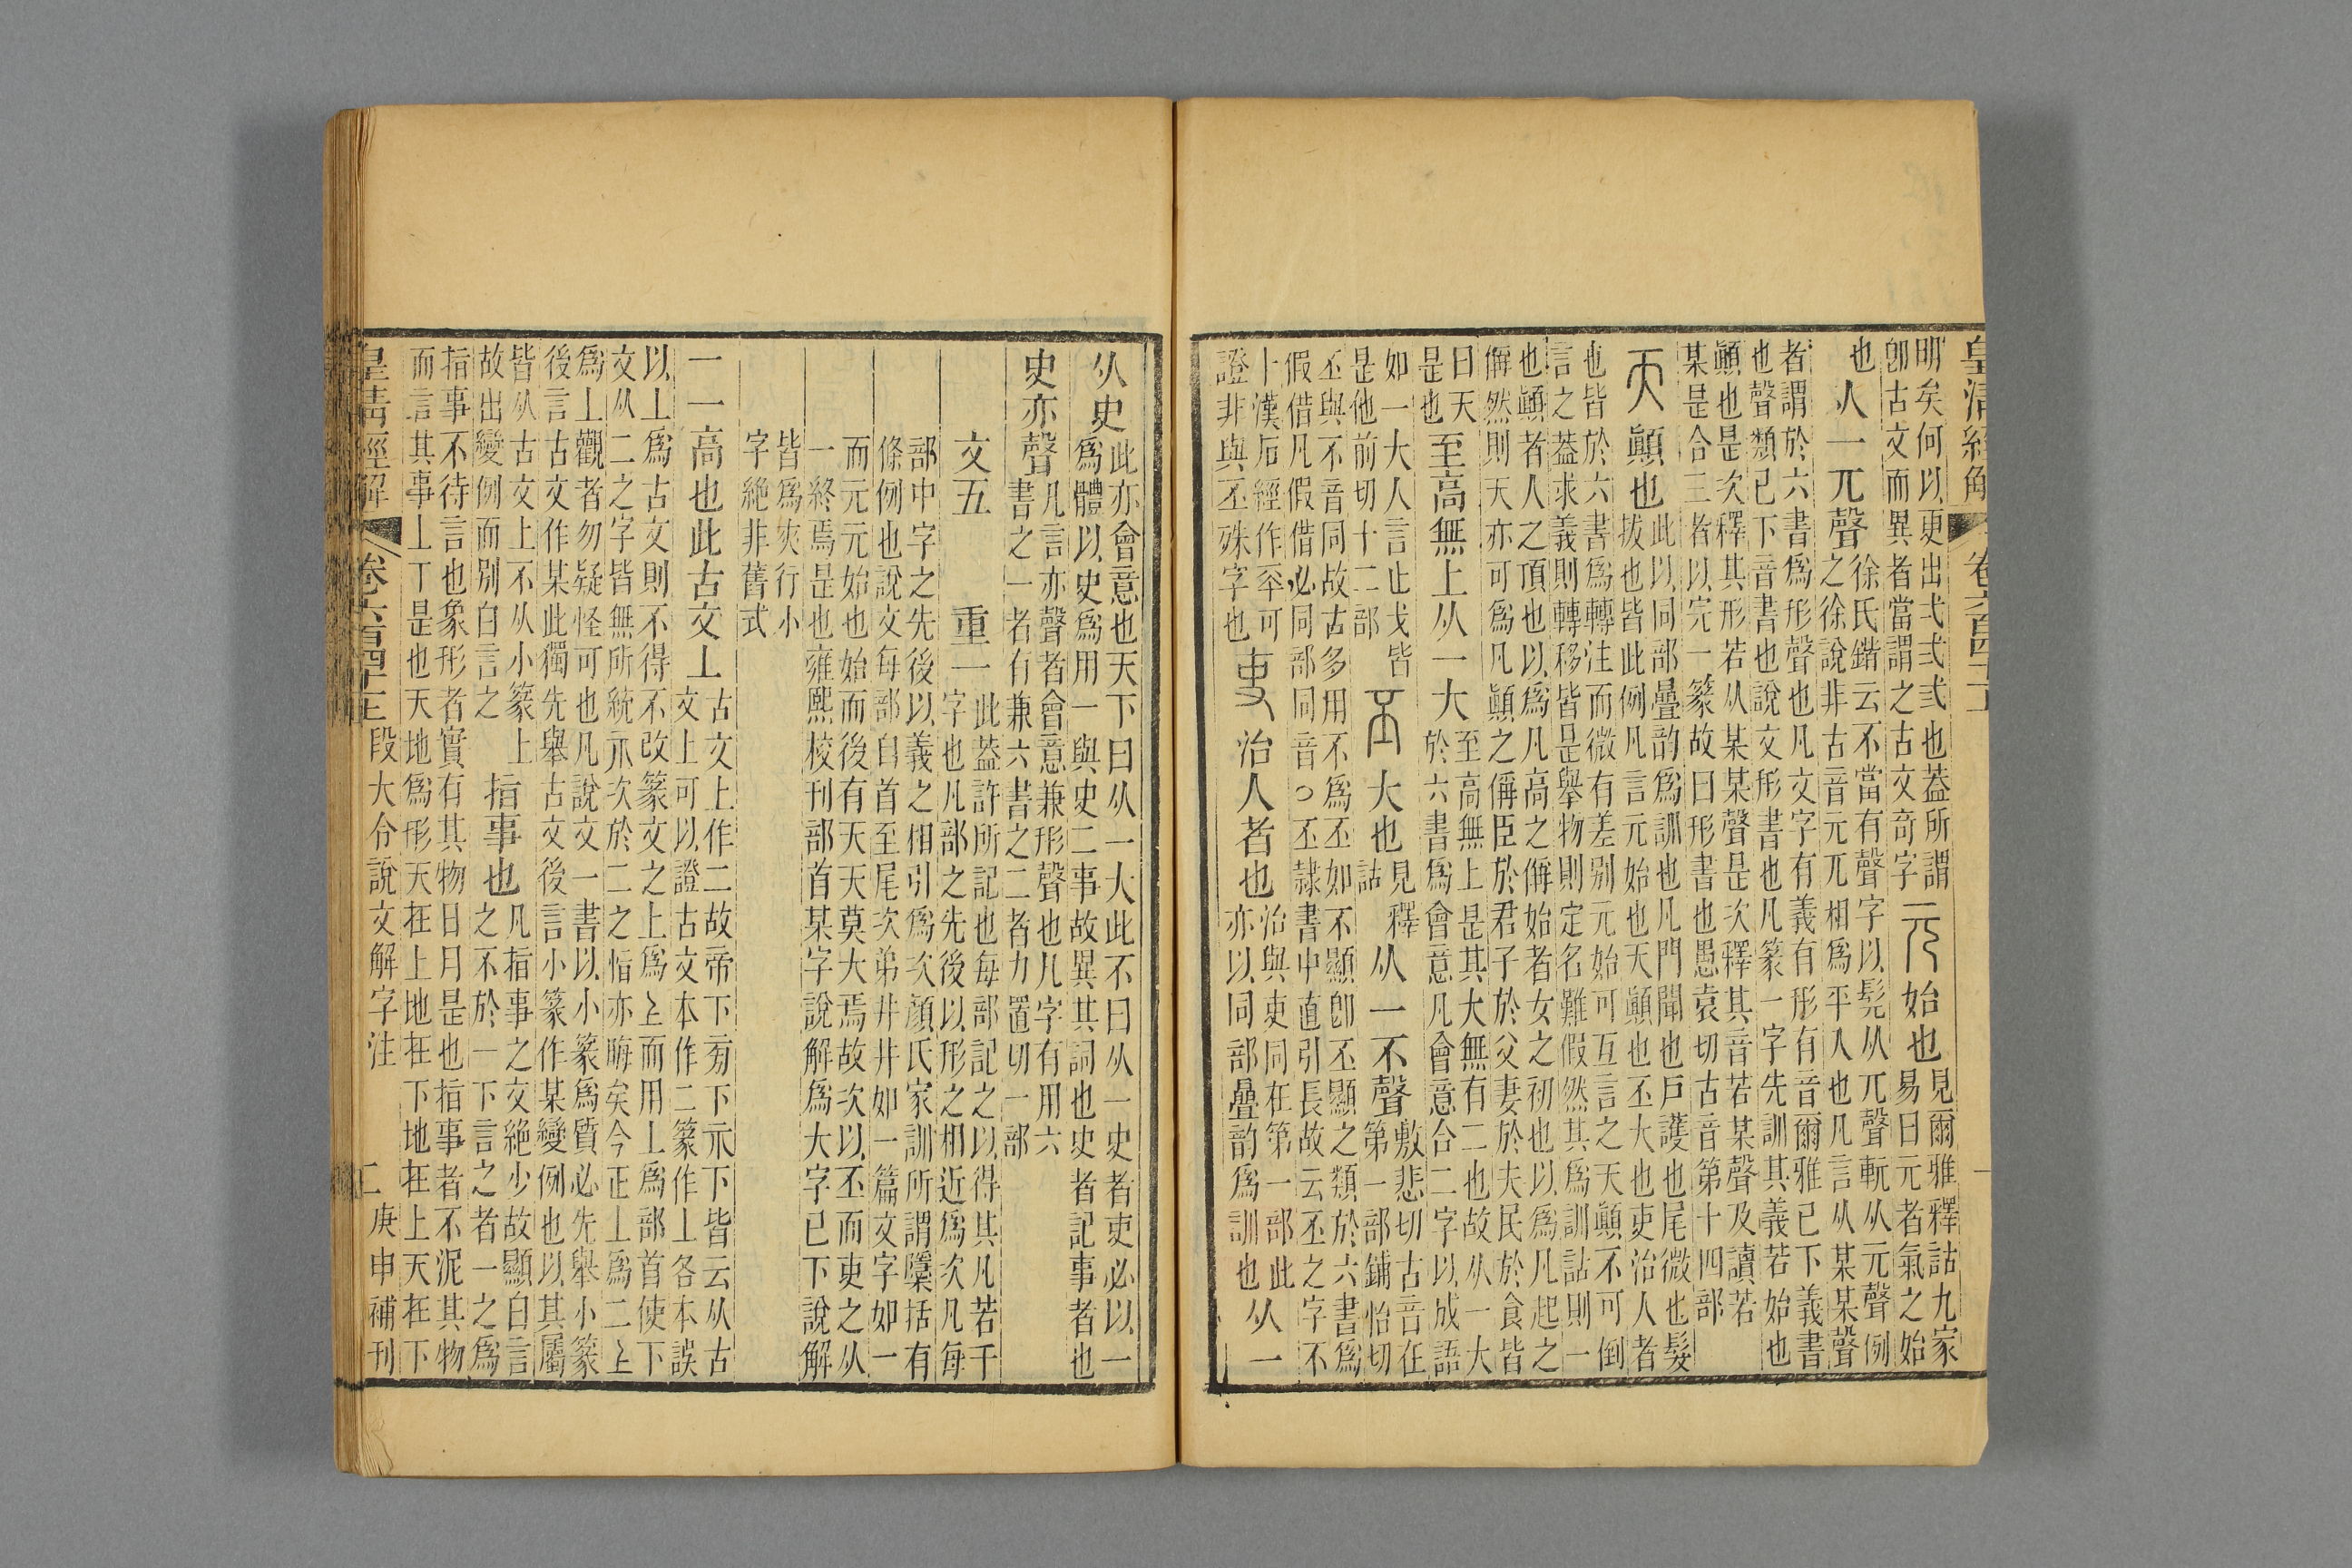 皇清經解 卷六百四十一 一
明矣何以更出弌弍弎也蓋所謂
卽古文而異者當謂之古文奇字
元始也
見爾雅釋詁九家
易曰元者氣之始
也
从一兀聲
徐氏鍇云不當有聲字以髡从兀聲軏从元聲例
之徐說非古音元兀相爲平入也凡言从某某聲
者謂於六書爲形聲也凡文字有義有形有音爾雅已下義書
也聲類已下音書也說文形書也凡篆一字先訓其義若始也
顚也是次釋其形若从某某聲是次釋其音若某聲及讀若
某是合三者以完一篆故曰形書也愚袁切古音第十四部
天顚也
此以同部曡韵爲訓也凡門聞也戶護也尾微也髮
拔也皆此例凡言元始也天顚也丕大也吏治人者
也皆於六書爲轉注而微有差别元始可互言之天顚不可倒
言之葢求義則轉移皆是舉物則定名難假然其爲訓詁則一
也顚者人之頂也以爲凡高之偁始者女之初也以爲凡起之
偁然則天亦可爲凡顚之偁臣於君子於父妻於夫民於食皆
曰天
是也
至高無上从一大
至高無上是其大無有二也故从一大
於六書爲會意凡會意合二字以成語
如一大人言止戈皆
是他前切十二部
丕大也
見釋
詁
从一不聲
敷悲切古音在
第一部鋪怡切
丕與不音同故古多用不爲丕如不顯卽丕顯之類於六書爲
假借凡假借必同部同音○丕隸書中直引長故云丕之字不
十漢石經作㔻可
證非與丕殊字也
吏治人者也
治與吏同在第一部此
亦以同部曡韵爲訓也
从一
从史
此亦會意也天下曰从一大此不曰从一史者吏必以一
爲體以史爲用一與史二事故異其詞也史者記事者也
史亦聲
凡言亦聲者會意兼形聲也凡字有用六
書之一者有兼六書之二者力置切一部
文五
重一
此葢許所記也每部記之以得其凡若干
字也凡部之先後以形之相近爲次凡每
部中字之先後以義之相引爲次顏氏家訓所謂檃括有
條例也說文每部自首至尾次弟井井如一篇文字如一
而元元始也始而後有天天莫大焉故次以丕而吏之从
一終焉是也雍熙校刊部首某字說解爲大字已下說解
皆爲夾行小
字絶非舊式
二高也此古文丄
古文上作二故帝下㫄下示下皆云从古
文上可以證古文本作二篆作丄各本誤
以丄爲古文則不得不改篆文之上爲𠄞而用丄爲部首使下
文从二之字皆無所統示次於二之恉亦晦矣今正丄爲二𠄞
爲丄觀者勿疑怪可也凡說文一書以小篆爲質必先舉小篆
後言古文作某此獨先舉古文後言小篆作某變例也以其屬
皆从古文上不从小篆上
故出變例而別白言之
指事也
凡指事之文絶少故顯白言
之不於一下言之者一之爲
指事不待言也象形者實有其物日月是也指事者不泥其物
而言其事丄丅是也天地爲形天在上地在下地在上天在下
皇清經解 卷六百四十一 段大令說文解字注 二 庚申補刊